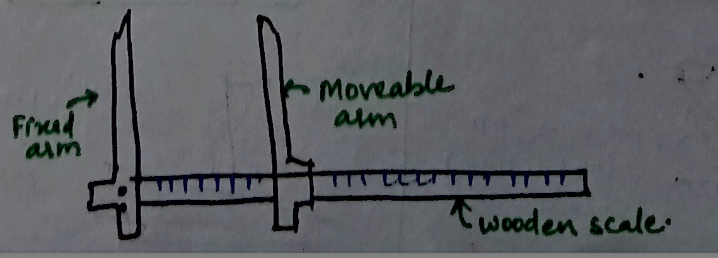 Fixed
arm
Moveable
arm
wooden scale.